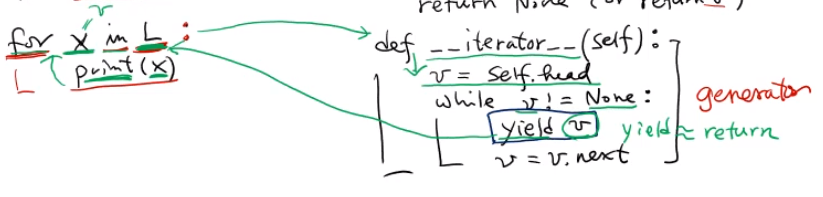 return None (or return v)
v
for x in L :
print(x)
L
def __iterator__(self):
v = self.head
while v != None :
yield v
v = v.next
generator
yield ≈ return